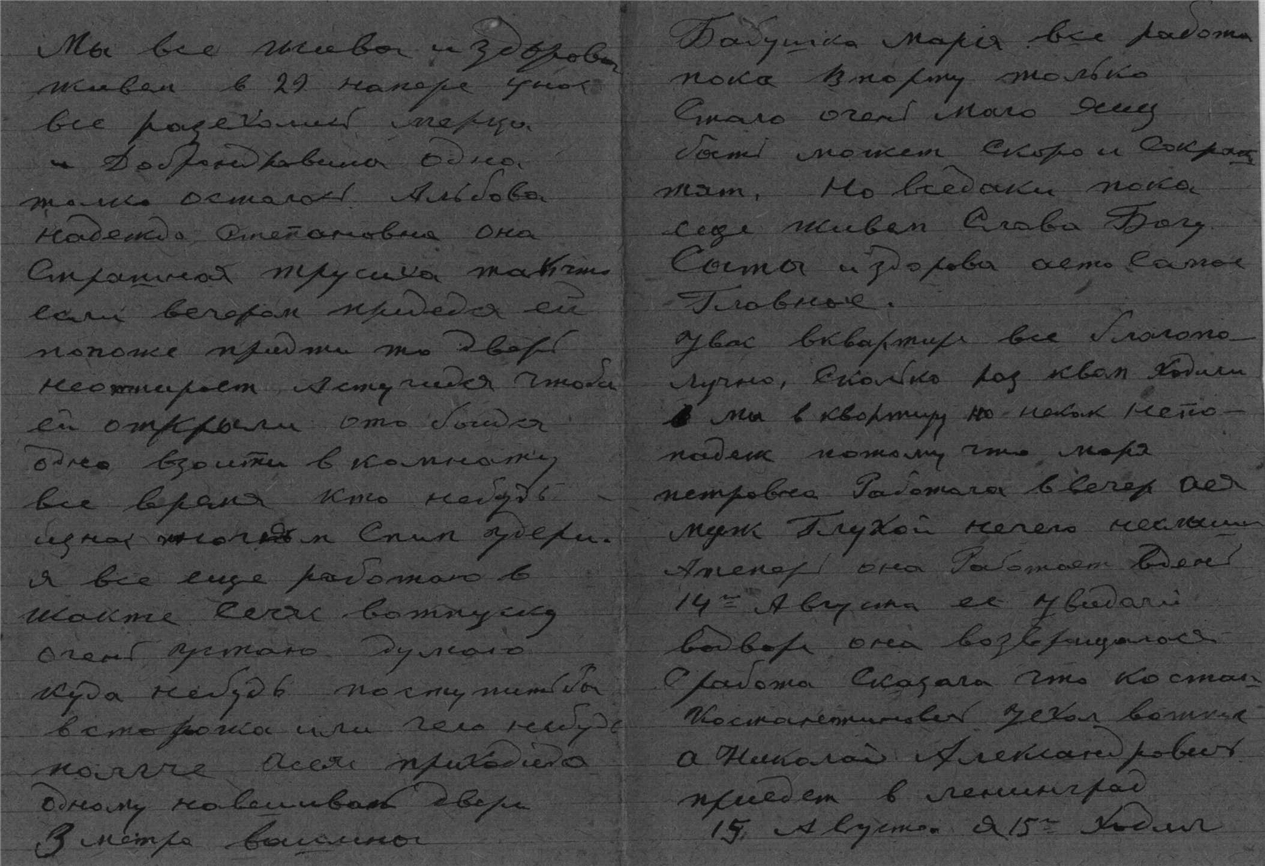 Мы все живы и здоровы
живем в 29 напере у нас
все разехолис
и Добронравина одна
толко осталос Альбова
Надежда Степановна она
Страшная трусиха так что
если вечером придедся ей
попоже придти то двер
неотпирает Астучидся чтобы
ей открыли ото боидся
одна взоити в комнату
все время кто небудь
Спит
я все еще работаю в
жакте Сечяс вотпуску
очен устаю думаю
куда небудь поступит бы
в сторожа или чего небуд
полхче приходидся
одному навешиват двери
3 метра вышины
Бабушка Марія все работа
пока в порту только
Стало очен мало яиц
быт может Скоро и Сократ
тят. Но вседаки пока
еще живем Слава Богу
Сыты и здоровы аето Самое
Главное.
У вас вквартире все благопо-
лучно, Сколко раз квам Ходили
мы в квартиру но некак непо-
падеж потому что маря
петровна Работала ввечер аея
муж Глухой нечего неслыши
Атепер она Работает вден
14го Августа ее увидали
водворе она возвращалося
Сработы Сказала что костан-
костанстинович уехал вотпуск
а Николай Александрович
приедет в ленинград
15 Августа. Я 15го Ходил